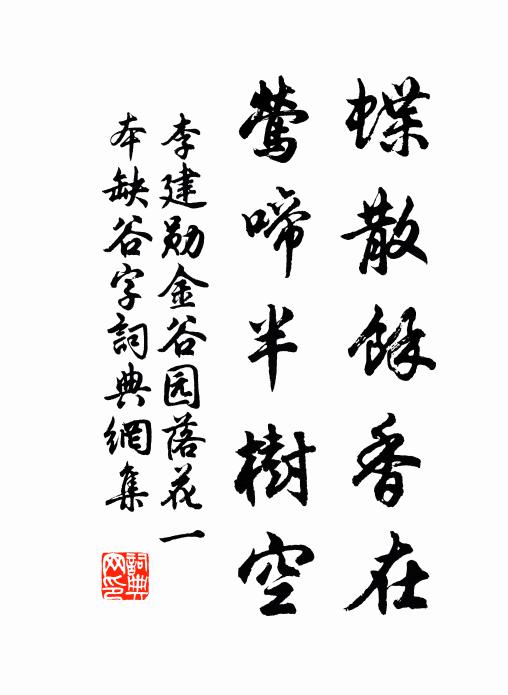 蝶散餘香在
鶯啼半樹空
李建勋金谷园落花一
本缺谷字詞典網集
詞典网印